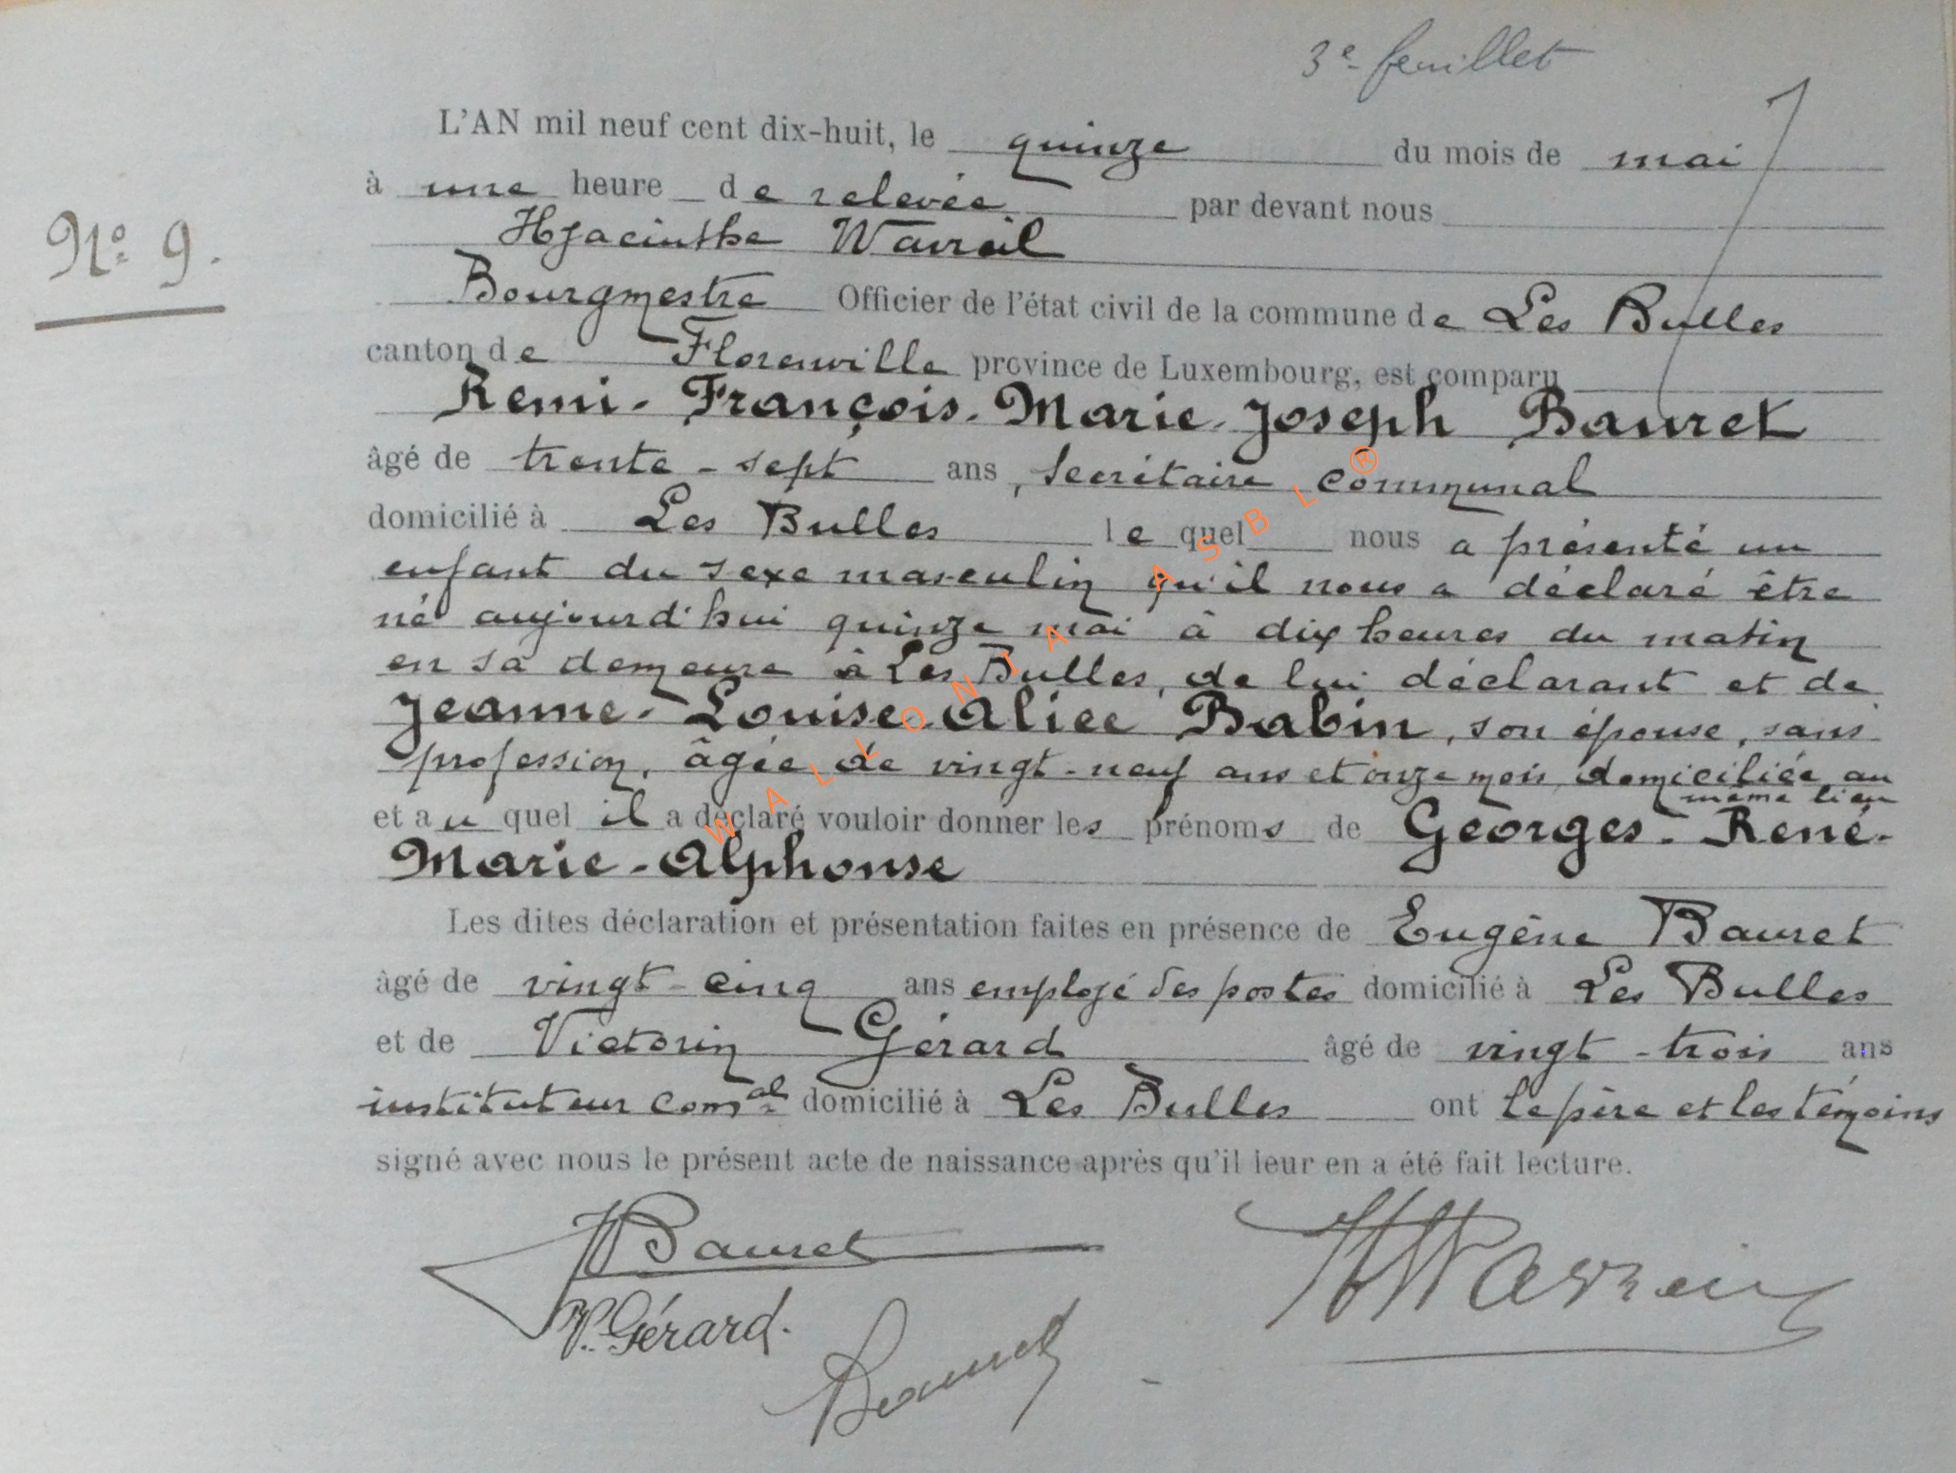 3e feuillet
L'AN mil neuf cent dix-huit, le quinze du mois de mai
à une heure de relevée par devant nous
Nº 9.
Hyacinthe Wavreil
Bourgmestre Officier de l'état civil de la commune de Les Bulles
canton de Florenville province de Luxembourg, est comparu
Remi-François-Marie-Joseph Bauret
âgé de trente-sept ans, secrétaire communal
domicilié à Les Bulles lequel nous a présenté un
enfant du sexe masculin qu'il nous a déclaré être
né aujourd'hui quinze mai à dix heures du matin
en sa demeure à Les Bulles, de lui déclarant et de
Jeanne-Louise-Alice Babin, son épouse, sans
profession, âgée de vingt-neuf ans et onze mois, domiciliée au
même lieu
et auquel il a déclaré vouloir donner les prénoms de Georges-René-
Marie-Alphonse
Les dites déclaration et présentation faites en présence de Eugène Bauret
âgé de vingt-cinq ans employé des postes domicilié à Les Bulles
et de Victorin Gérard âgé de vingt-trois ans
instituteur comal domicilié à Les Bulles ont le père et les témoins
signé avec nous le présent acte de naissance après qu'il leur en a été fait lecture.
Bauret
V. Gérard.
Bauret
WALLONIA ASBL ®